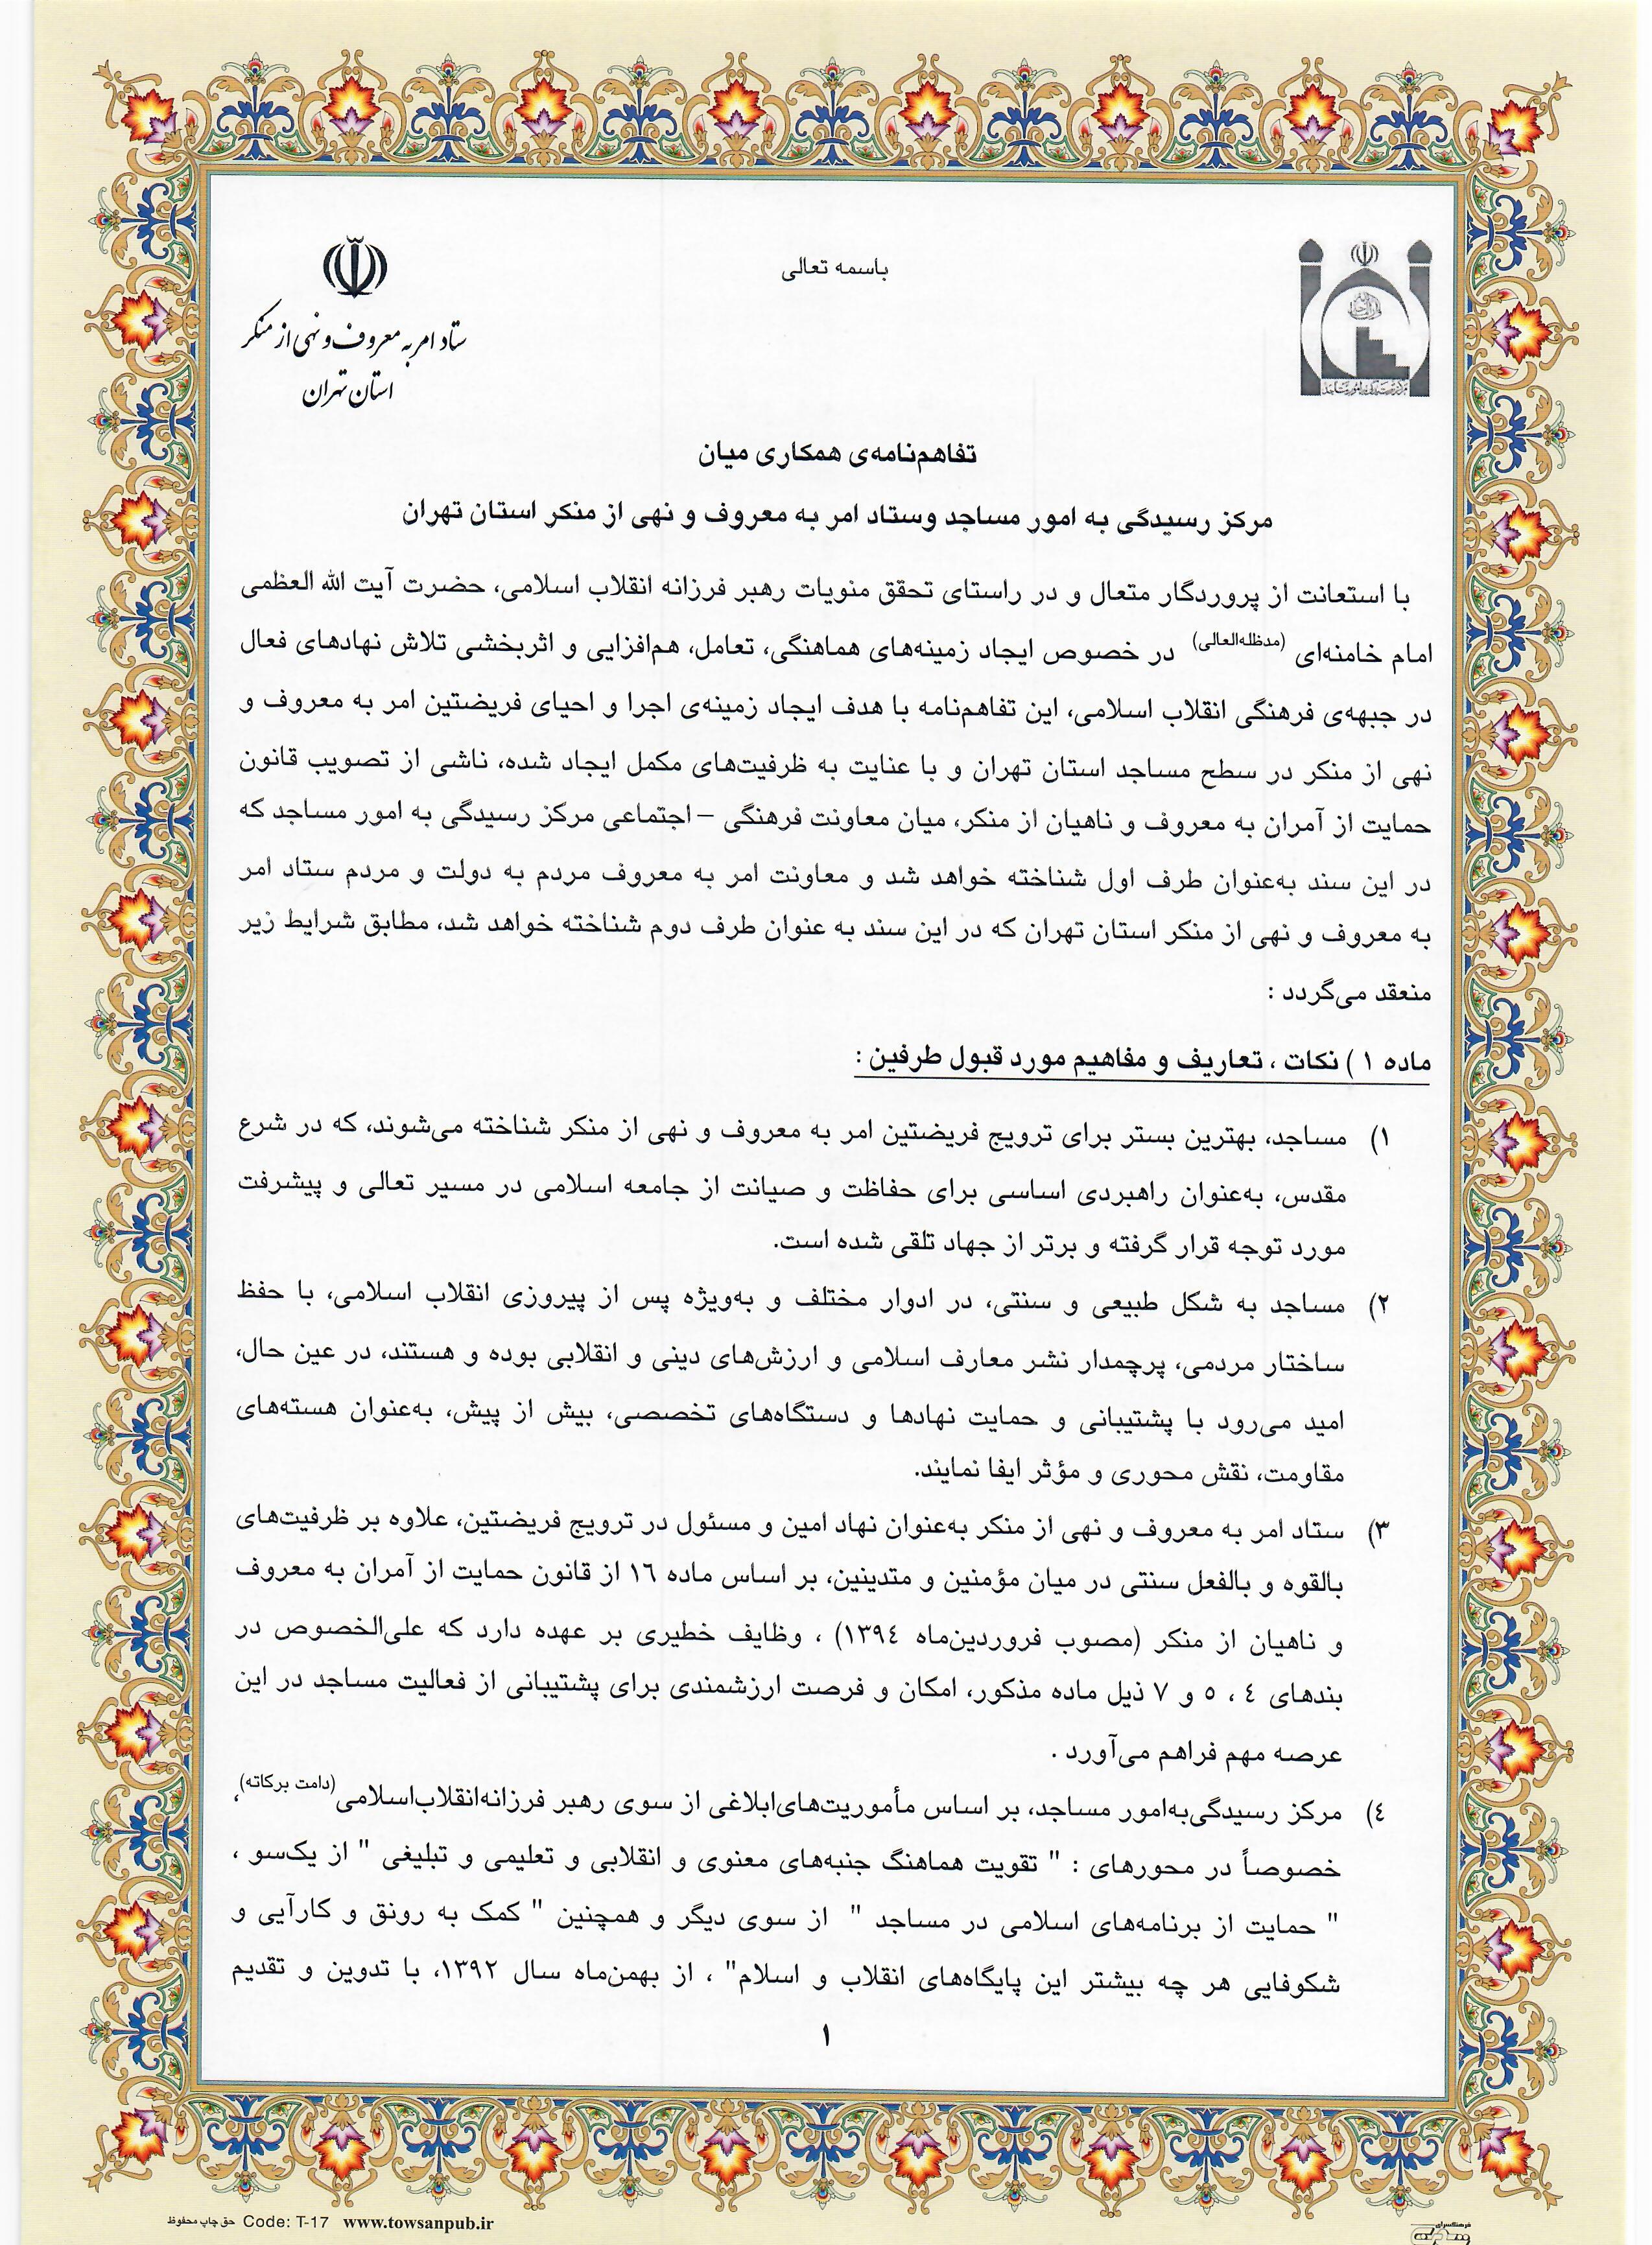 باسمه تعالی
ستاد امر به معروف و نهی از منکر
استان تهران
تفاهم‌نامه‌ی همکاری میان
مرکز رسیدگی به امور مساجد وستاد امر به معروف و نهی از منکر استان تهران
با استعانت از پروردگار متعال و در راستای تحقق منویات رهبر فرزانه انقلاب اسلامی، حضرت آیت الله العظمی
امام خامنه‌ای (مدظله‌العالی) در خصوص ایجاد زمینه‌های هماهنگی، تعامل، هم‌افزایی و اثربخشی تلاش نهادهای فعال
در جبهه‌ی فرهنگی انقلاب اسلامی، این تفاهم‌نامه با هدف ایجاد زمینه‌ی اجرا و احیای فریضتین امر به معروف و
نهی از منکر در سطح مساجد استان تهران و با عنایت به ظرفیت‌های مکمل ایجاد شده، ناشی از تصویب قانون
حمایت از آمران به معروف و ناهیان از منکر، میان معاونت فرهنگی – اجتماعی مرکز رسیدگی به امور مساجد که
در این سند به‌عنوان طرف اول شناخته خواهد شد و معاونت امر به معروف مردم به دولت و مردم ستاد امر
به معروف و نهی از منکر استان تهران که در این سند به عنوان طرف دوم شناخته خواهد شد، مطابق شرایط زیر
منعقد می‌گردد :
ماده ۱ ) نکات ، تعاریف و مفاهیم مورد قبول طرفین :
۱) مساجد، بهترین بستر برای ترویج فریضتین امر به معروف و نهی از منکر شناخته می‌شوند، که در شرع
مقدس، به‌عنوان راهبردی اساسی برای حفاظت و صیانت از جامعه اسلامی در مسیر تعالی و پیشرفت
مورد توجه قرار گرفته و برتر از جهاد تلقی شده است.
۲) مساجد به شکل طبیعی و سنتی، در ادوار مختلف و به‌ویژه پس از پیروزی انقلاب اسلامی، با حفظ
ساختار مردمی، پرچمدار نشر معارف اسلامی و ارزش‌های دینی و انقلابی بوده و هستند، در عین حال،
امید می‌رود با پشتیبانی و حمایت نهادها و دستگاه‌های تخصصی، بیش از پیش، به‌عنوان هسته‌های
مقاومت، نقش محوری و مؤثر ایفا نمایند.
۳) ستاد امر به معروف و نهی از منکر به‌عنوان نهاد امین و مسئول در ترویج فریضتین، علاوه بر ظرفیت‌های
بالقوه و بالفعل سنتی در میان مؤمنین و متدینین، بر اساس ماده ١٦ از قانون حمایت از آمران به معروف
و ناهیان از منکر (مصوب فروردین‌ماه ١٣٩٤) ، وظایف خطیری بر عهده دارد که علی‌الخصوص در
بندهای ٤ ، ٥ و ٧ ذیل ماده مذکور، امکان و فرصت ارزشمندی برای پشتیبانی از فعالیت مساجد در این
عرصه مهم فراهم می‌آورد .
٤) مرکز رسیدگی‌به‌امور مساجد، بر اساس مأموریت‌های‌ابلاغی از سوی رهبر فرزانه‌انقلاب‌اسلامی(دامت برکاته)،
خصوصاً در محورهای : " تقویت هماهنگ جنبه‌های معنوی و انقلابی و تعلیمی و تبلیغی " از یک‌سو ،
" حمایت از برنامه‌های اسلامی در مساجد " از سوی دیگر و همچنین " کمک به رونق و کارآیی و
شکوفایی هر چه بیشتر این پایگاه‌های انقلاب و اسلام" ، از بهمن‌ماه سال ١٣٩٢، با تدوین و تقدیم
١
حق چاپ محفوظ Code: T-17 www.towsanpub.ir
فرهنگسرای